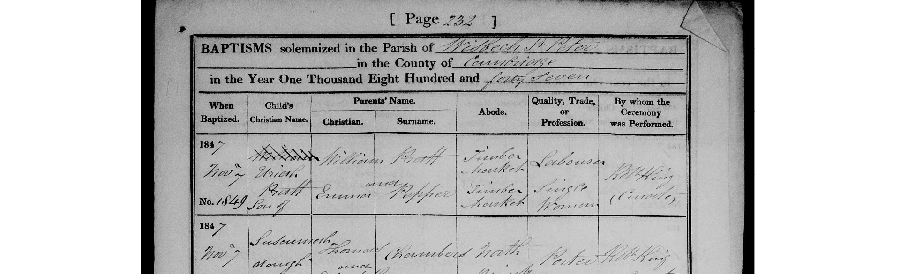 [ Page 232 ]
BAPTISMS solemnized in the Parish of Wisbech St Peter
in the County of Cambridge
in the Year One Thousand Eight Hundred and forty Seven
When Baptized. Child's Christian Name. Parents' Name. Christian. Surname. Abode. Quality, Trade, or Profession. By whom the Ceremony was Performed.
1847
William Bott Timber Market Labourer
Novr 7 Uriah
Bott Emma and Pepper Timber Market Single Woman (Curate)
No. 1849 Son of
1847
Novr 7 Susannah Thomas Chambers North Porter
and